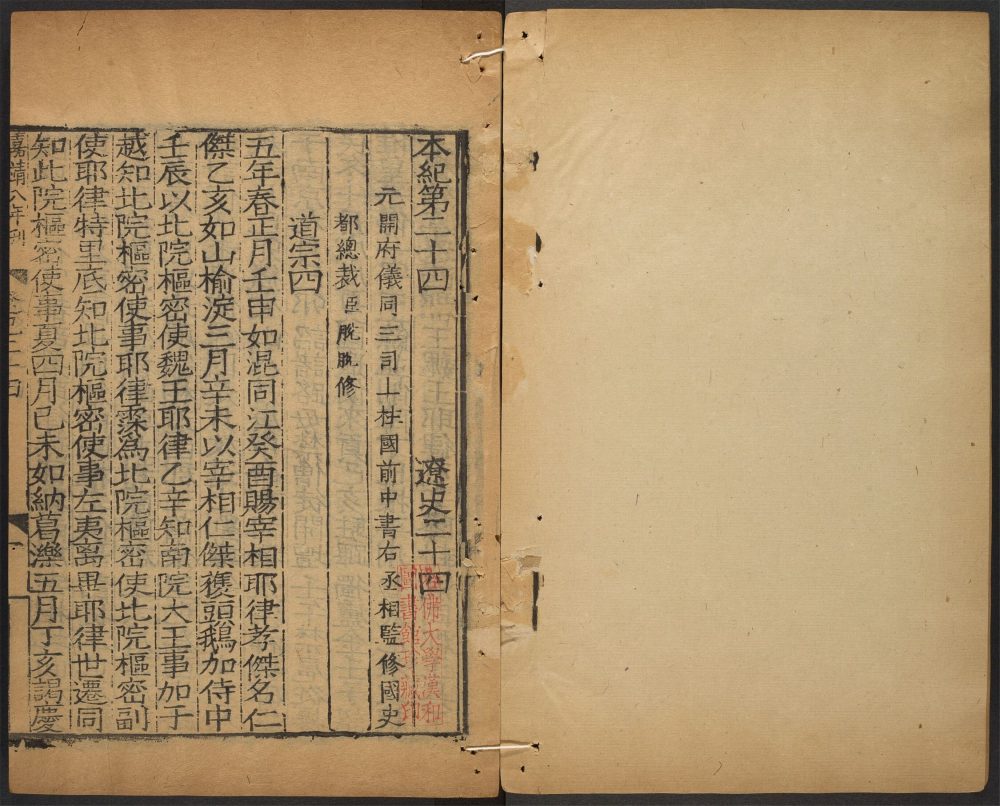 本紀第二十四 遼史二十四
元開府儀同三司上柱國前中書右丞相監修國史
都總裁臣脫脫修
道宗四
五年春正月壬申如混同江癸酉賜宰相耶律孝傑名仁
傑乙亥如山榆淀三月辛未以宰相仁傑獲頭鵝加侍中
壬辰以北院樞密使魏王耶律乙辛知南院大王事加于
越知北院樞密使事耶律霂為北院樞密使北院樞密副
使耶律特里底知北院樞密使事左夷离畢耶律世遷同
知北院樞密使事夏四月己未如納葛濼五月丁亥謁慶
嘉靖八年刊
佛大學漢和
圖書館珍藏印